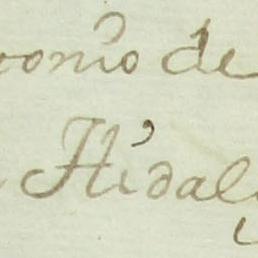 onio de
Hidalg